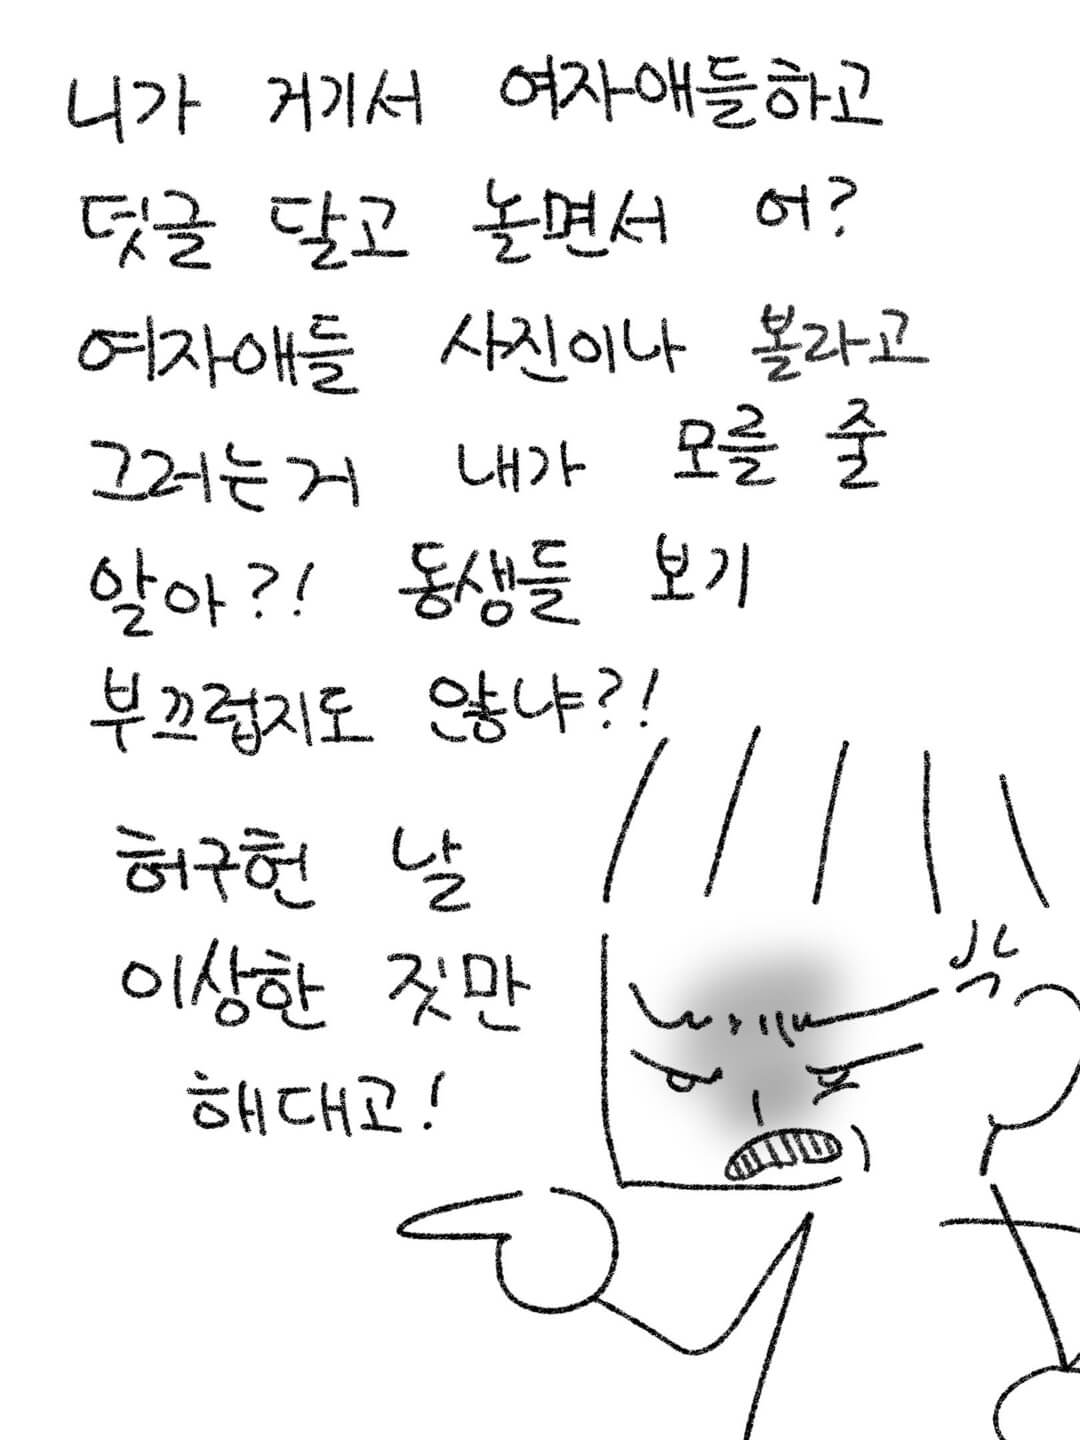 니가 거기서 여자애들하고
덧글 달고 놀면서 어?
여자애들 사진이나 볼라고
그러는거 내가 모를 줄
알아?! 동생들 보기
부끄럽지도 않냐?!
허구헌 날
이상한 짓만
해대고!